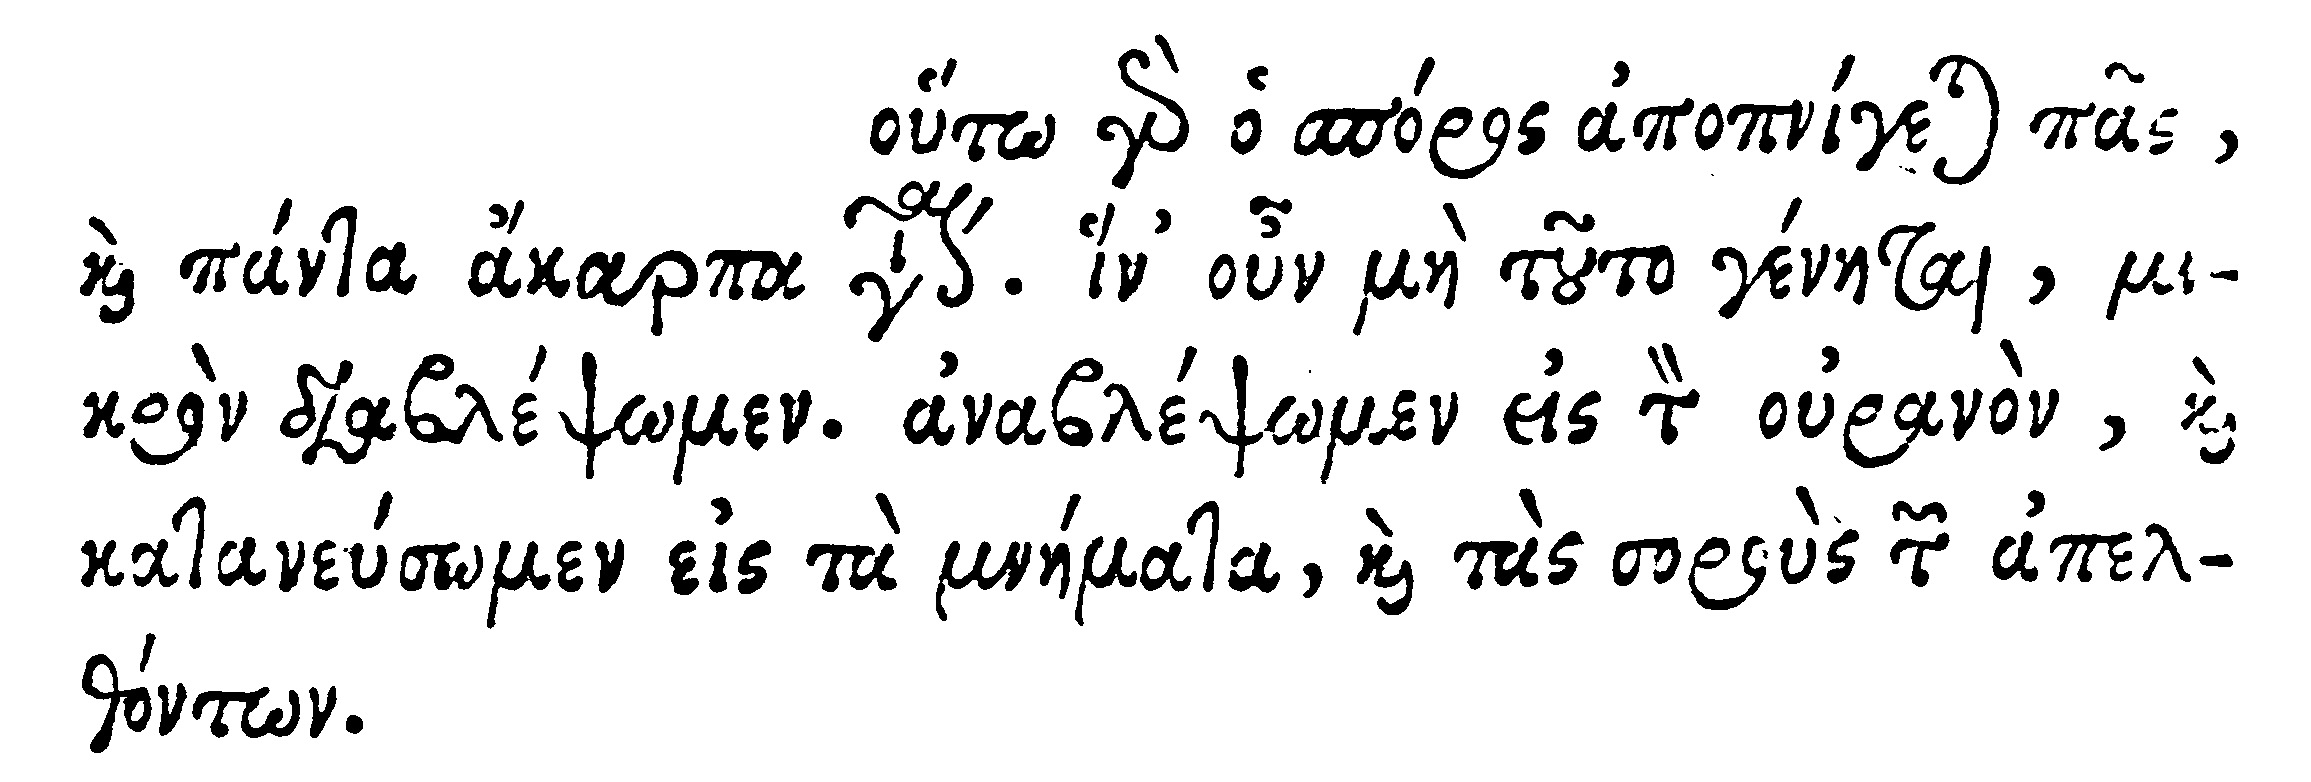 οὕτω γὰρ ὁ σπόρος ἀποπνίγεται πᾶς,
καὶ πάντα ἄκαρπα γίνεται. ἵν’ οὖν μὴ τοῦτο γένηται, μι-
κρὸν διαβλέψωμεν. ἀναβλέψωμεν εἰς τὸν οὐρανὸν, καὶ
κατανεύσωμεν εἰς τὰ μνήματα, καὶ τὰς σοροὺς τῶν ἀπελ-
θόντων.